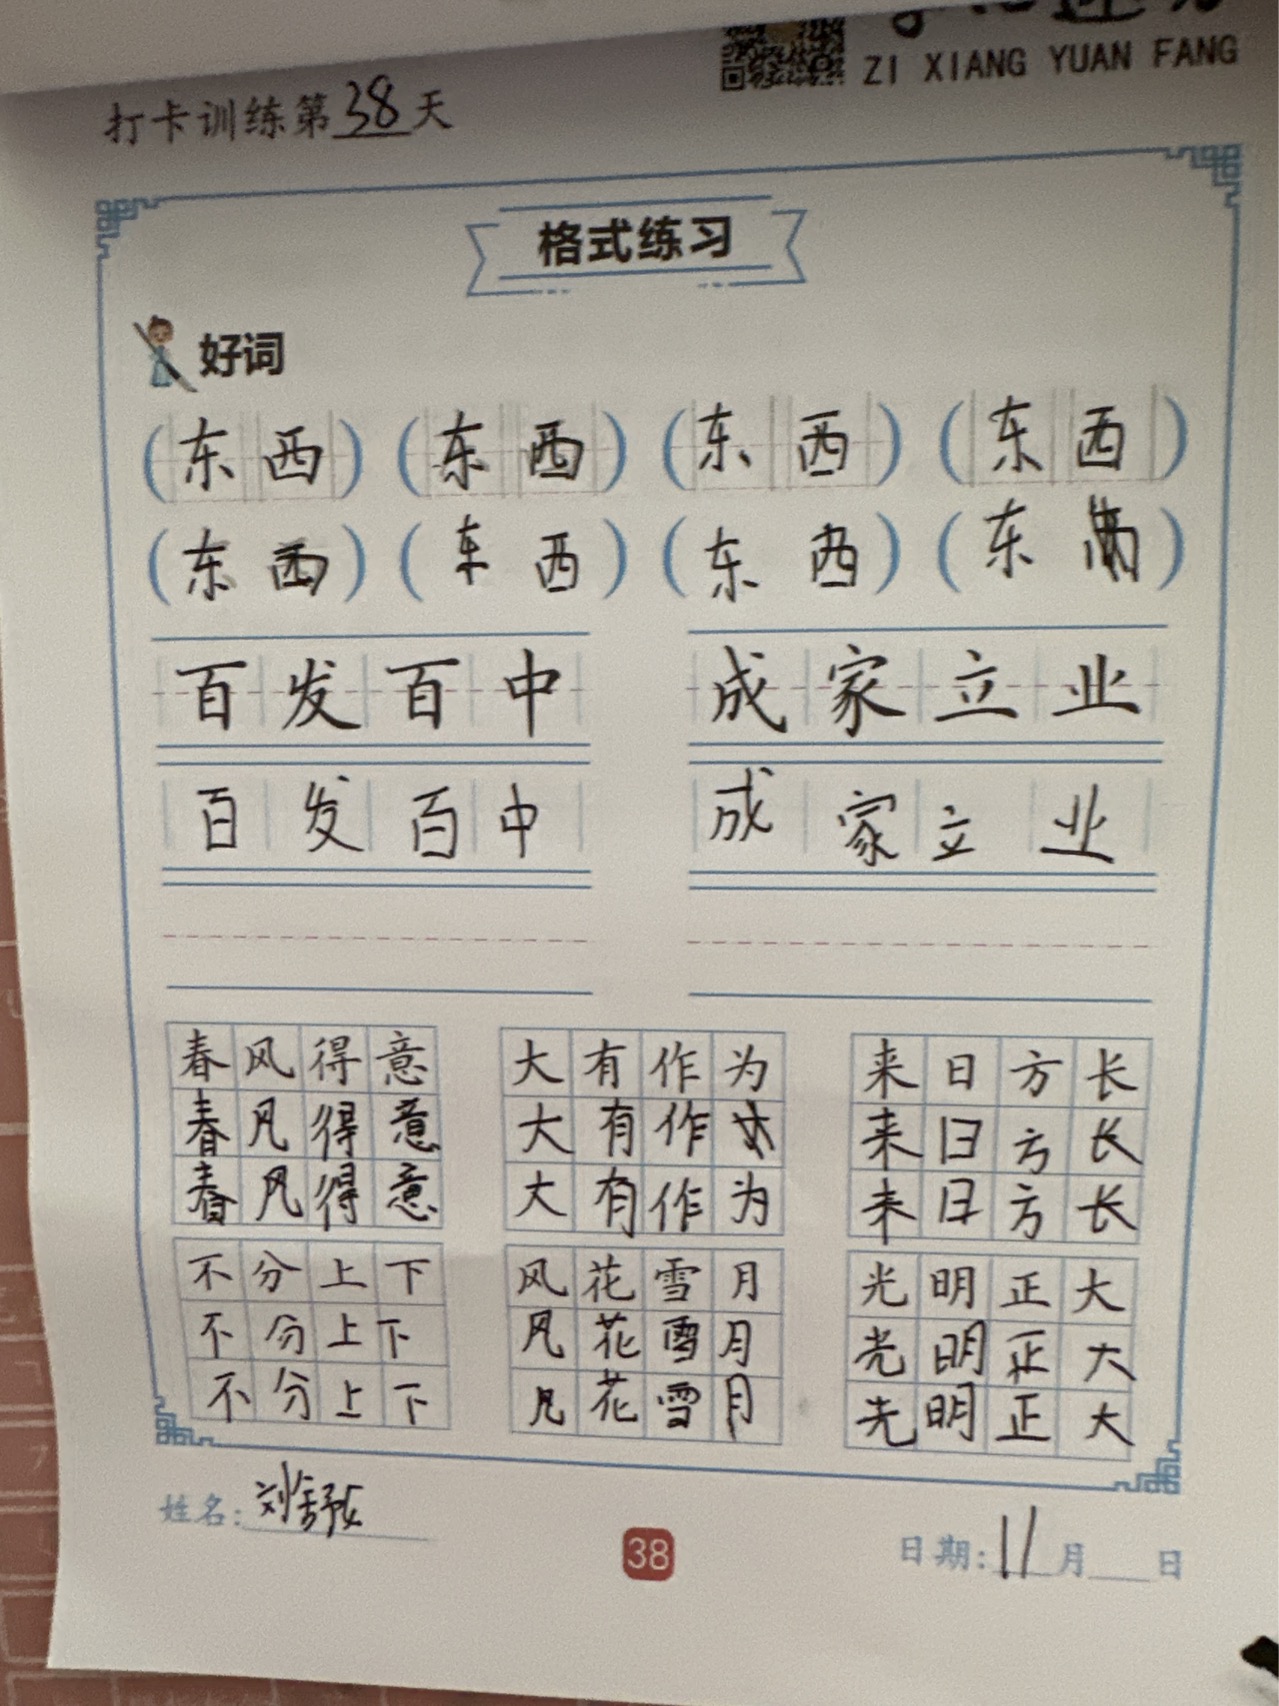 ZI XIANG YUAN FANG
打卡训练第38天
格式练习
好词
(东西) (东西) (东西) (东西)
(东西) (东西) (东西) (东)
百发百中 成家立业
百发百中 成家立业
春风得意 大有作为 来日方长
春风得意 大有作 来日方长
春风得意 大有作为 来日方长
不分上下 风花雪月 光明正大
不分上下 风花雪月 光明正大
不分上下 风花雪月 光明正大
姓名: 刘舒 38 日期: 11月 日